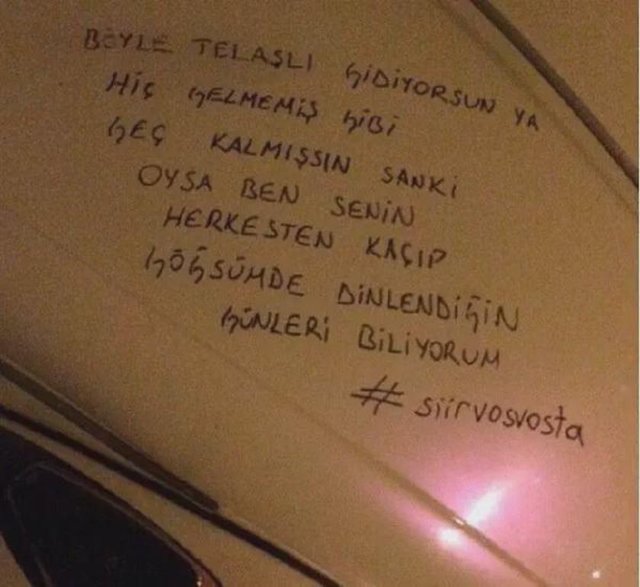 BÖYLE TELAŞLI GİDİYORSUN YA
HİÇ GELMEMİŞ GİBİ
GEÇ KALMIŞSIN SANKİ
OYSA BEN SENİN
HERKESTEN KAÇIP
GÖĞSÜMDE DİNLENDİĞİN
GÜNLERİ BİLİYORUM
# siirvosvosta